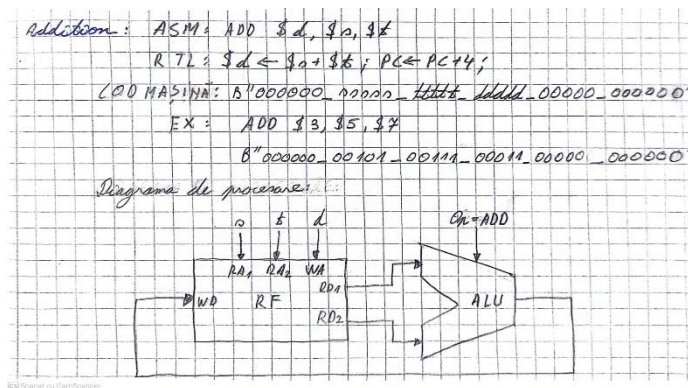 Addition: ASM: ADD $d, $s, $t
RTL: $d ← $s + $t ; PC ← PC+4;
COD MAȘINĂ: B"000000_sssss_ttttt_ddddd_00000_000000
EX: ADD $3, $5, $7
B"000000_00101_00111_00011_00000_000000
Diagrama de procesare:
s t d Op=ADD
RA1 RA2 WA
RD1
WD RF ALU
RD2
Scanat cu CamScanner